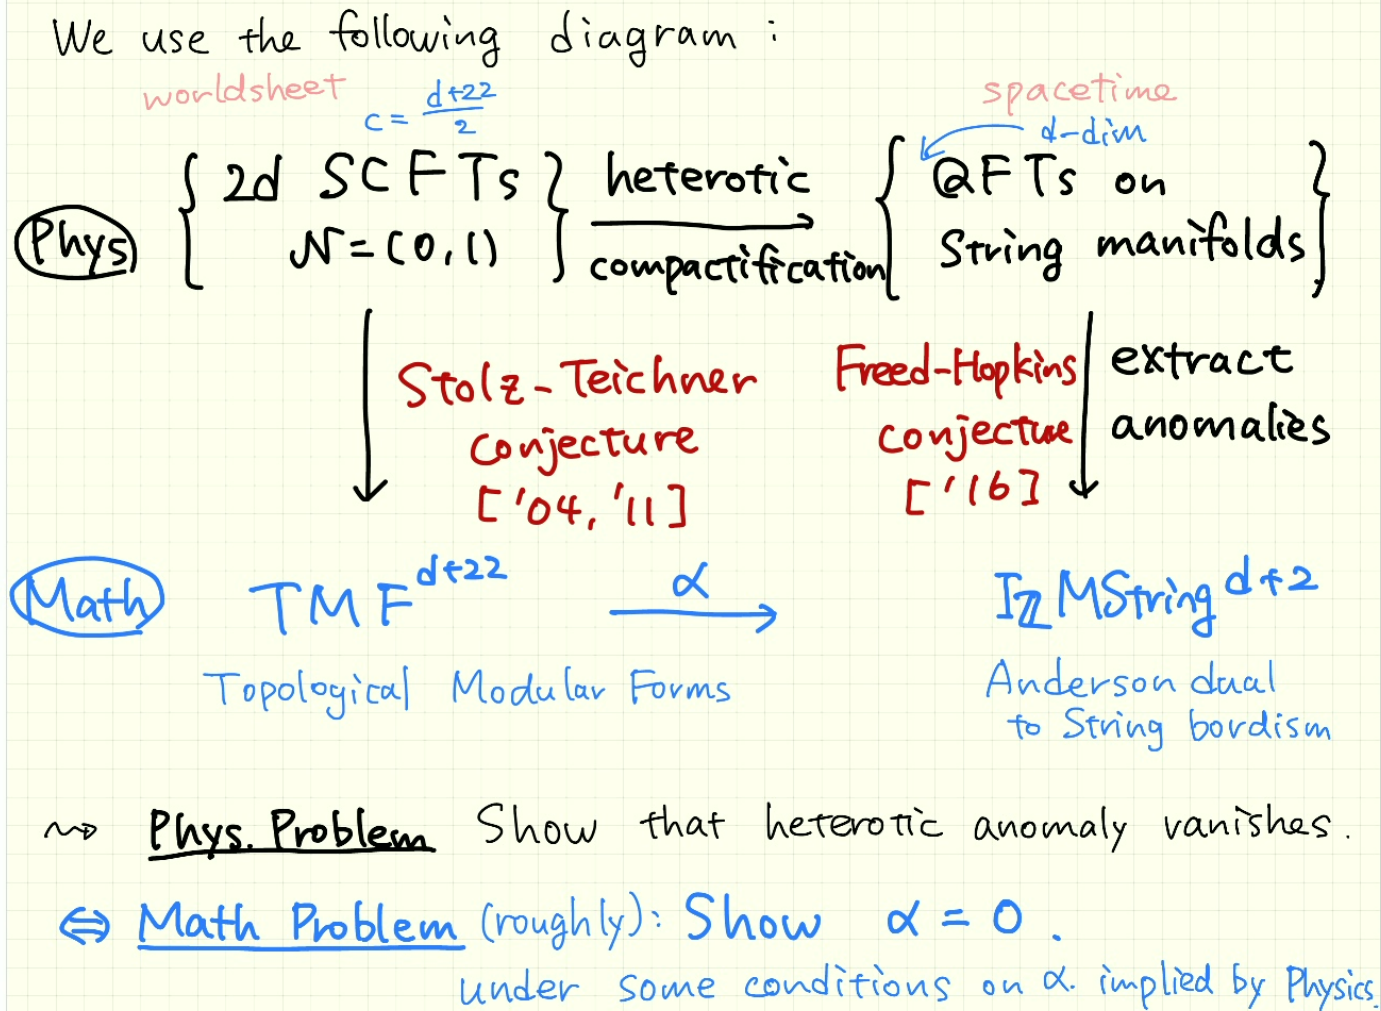 We use the following diagram :
worldsheet
c = d+22/2
spacetime
d-dim
Phys
{ 2d SCFTs N=(0,1) }
heterotic
compactification
{ QFTs on
String manifolds }
Stolz-Teichner
conjecture
['04, '11]
Freed-Hopkins
conjecture
['16]
extract
anomalies
Math
TMF^{d+22}
α
I_ℤ MString^{d+2}
Topological Modular Forms
Anderson dual
to String bordism
⇝ Phys. Problem Show that heterotic anomaly vanishes.
⇔ Math Problem (roughly): Show α = 0.
under some conditions on α. implied by Physics.